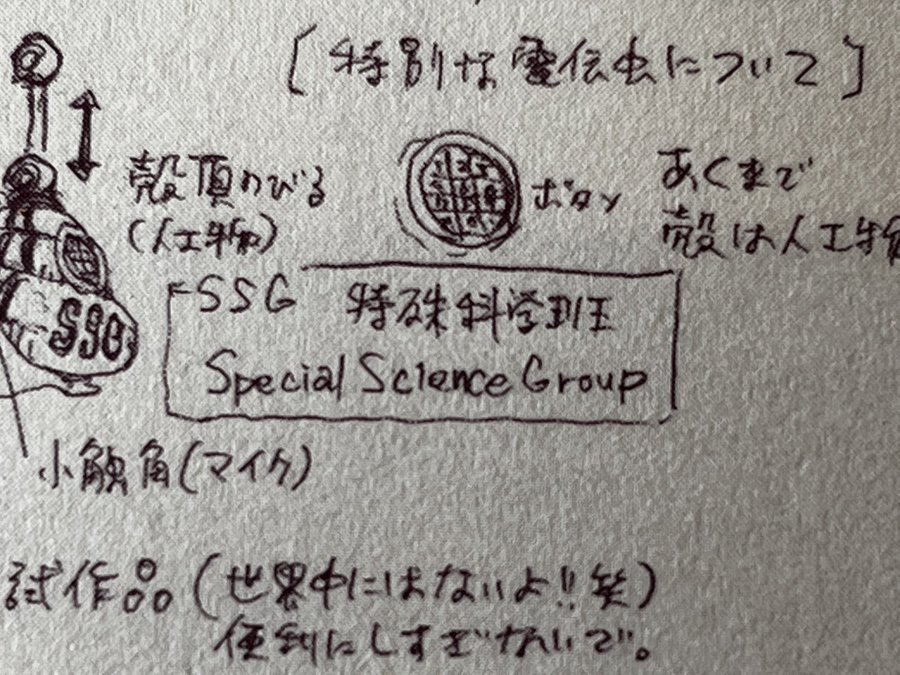 [特別な電伝虫について]
殻頂のびる
(人工物)
ボタン
あくまで
殻は人工物
SSG
SSG 特殊科学班
Special Science Group
小触角(マイク)
試作品(世界中にはないよ!!笑)
便利にしすぎないで。